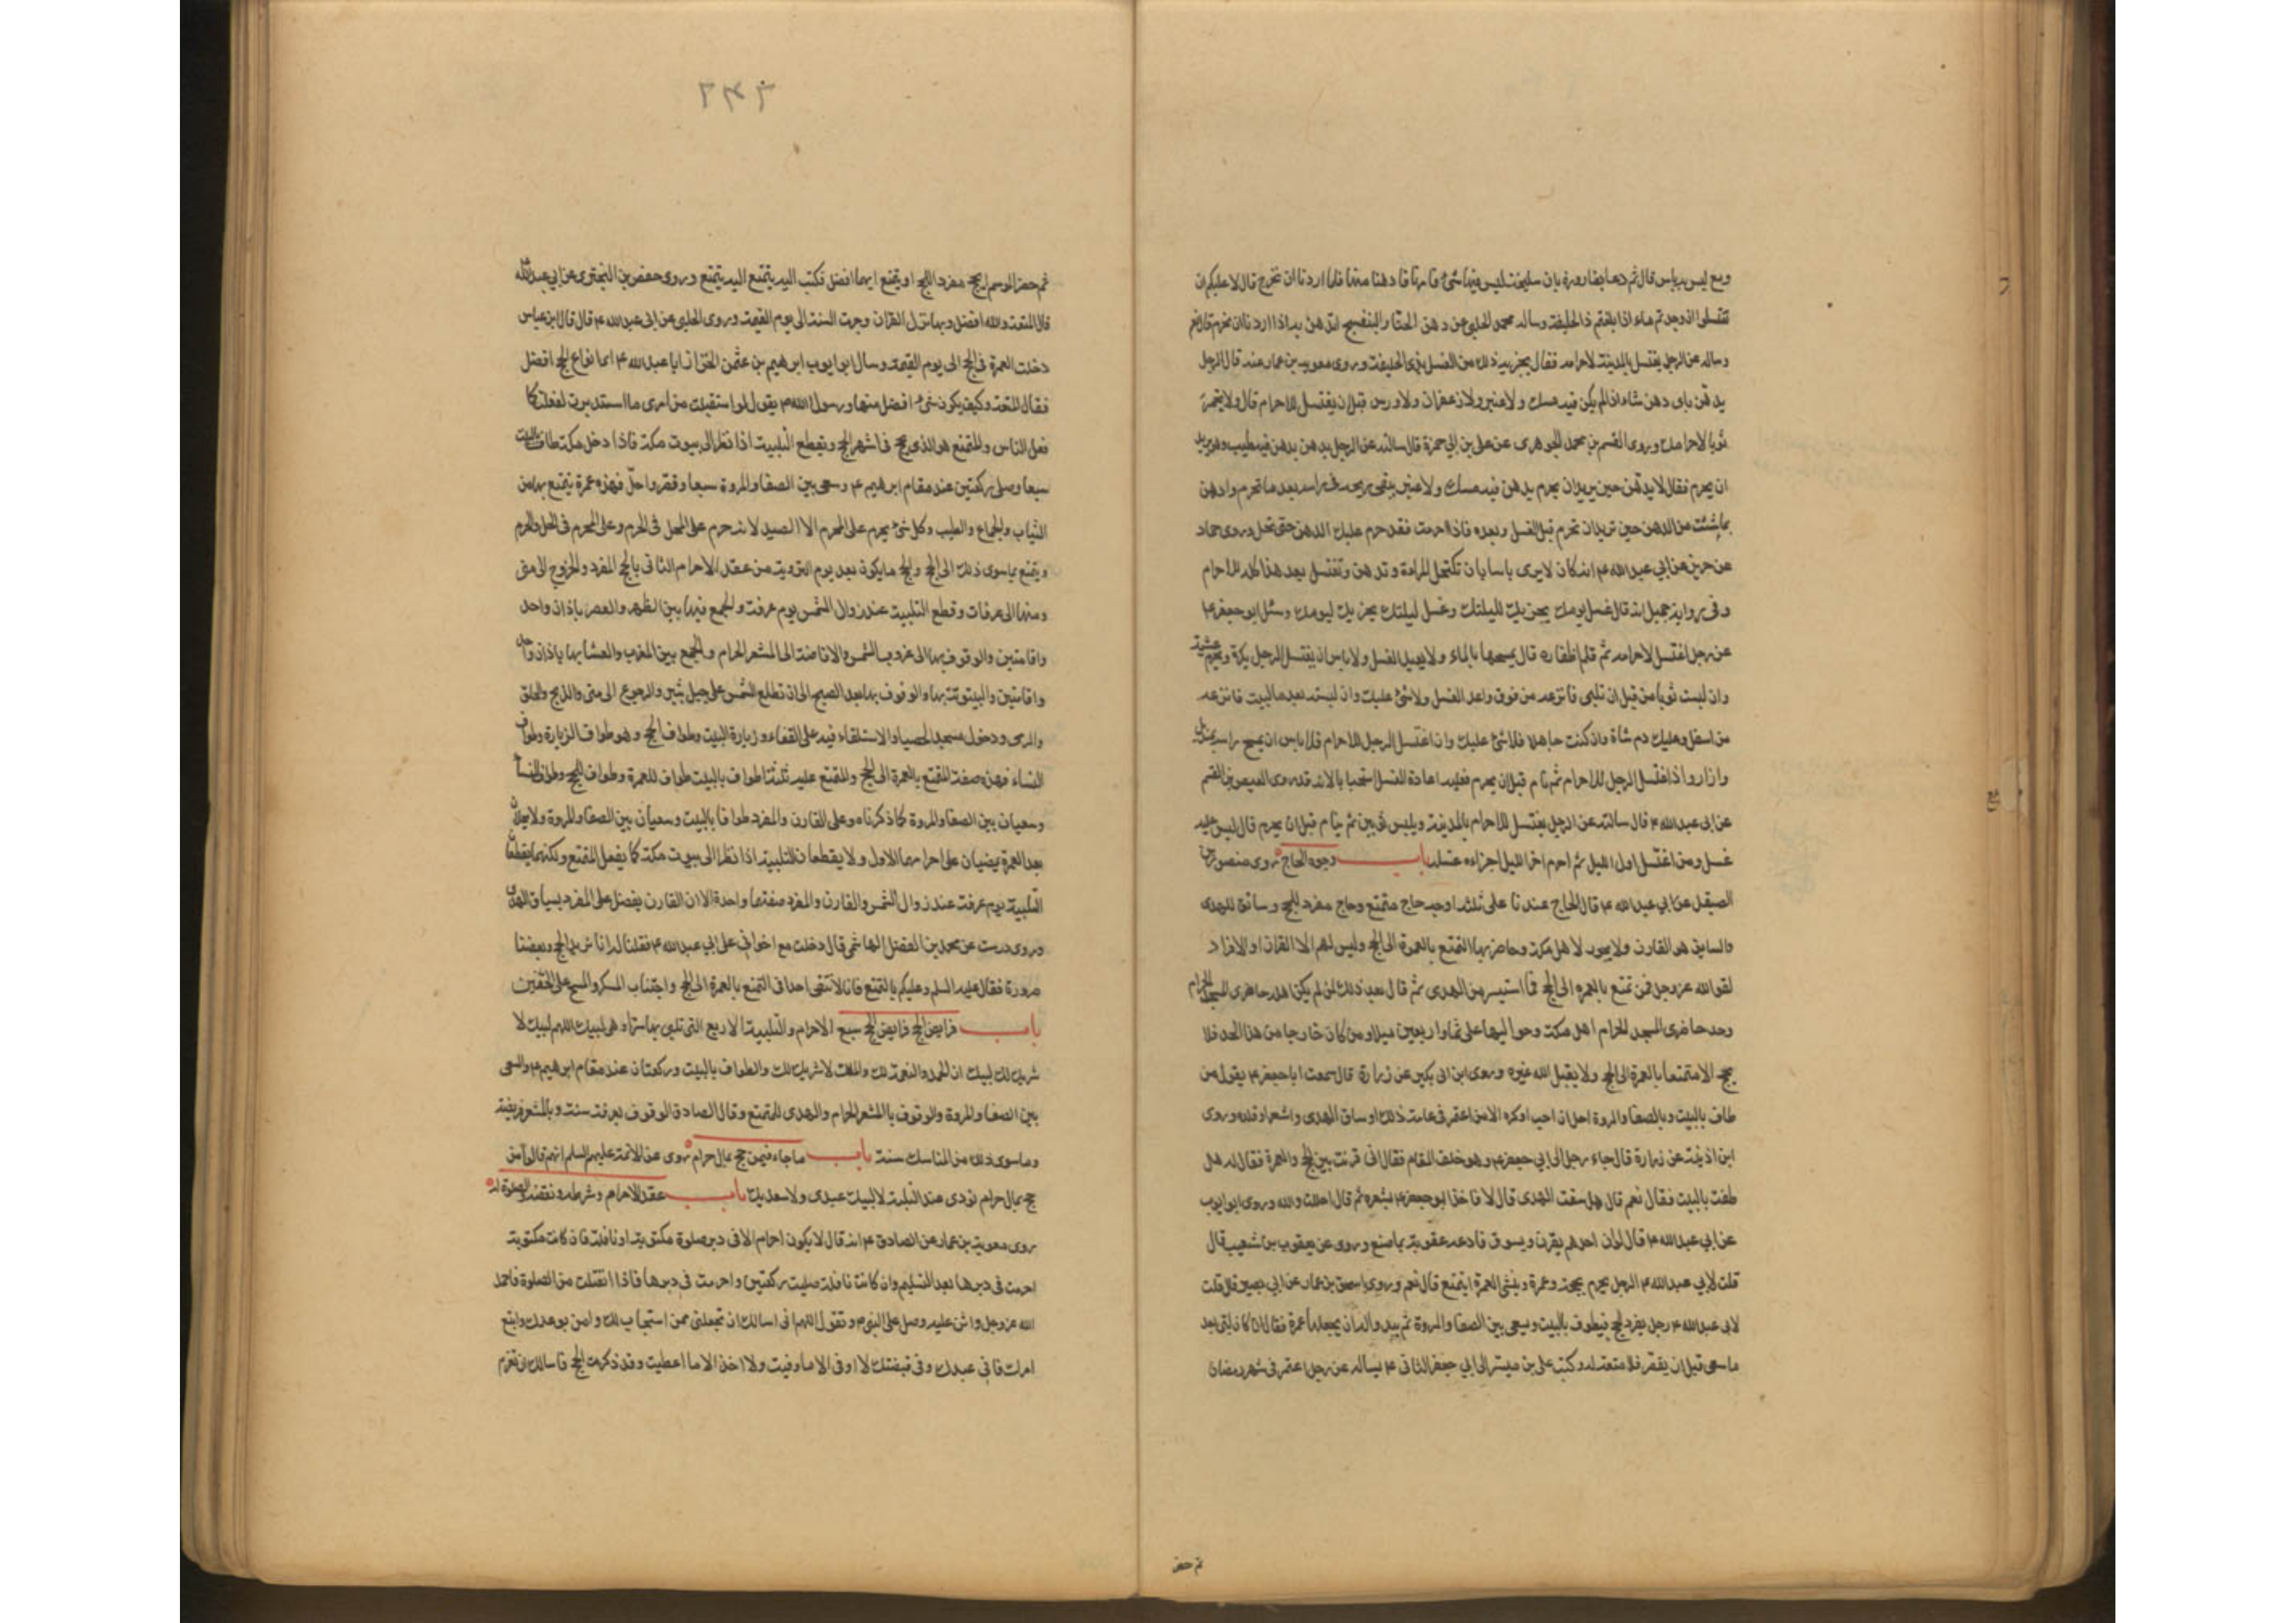 وبع ليس به باس قال ثم دعا بقارورة بان سليخة ليس فيها شئ فامرنا فادهنا منها فلما اردنا ان نخرج قال لا عليكم ان
تغتسلوا ان وجدتم ماء اذا بلغتم ذا الحليفة وساله محمد الحلبي عن دهن الحنا والبنفسج اندهن به اذا اردنا ان نحرم قال نعم
وساله عن الرجل يغتسل بالمدينة لاحرامه فقال يجزيه ذلك من الغسل بذي الحليفة وروى معوية بن عمار عنه قال الرجل
يدهن باى دهن شاء اذا لم يكن فيه مسك ولا عنبر ولا زعفران ولا ورس قبل ان يغتسل للاحرام قال ولا تجمر
ثوبا لاحرامك وروى القسم بن محمد الجوهرى عن على بن ابي حمزة قال سالته عن الرجل يدهن بدهن فيه طيب وهو يريد
ان يحرم فقال لا يدهن حين يريد ان يحرم بدهن فيه مسك ولا عنبر يبقى ريحه في راسه بعد ما تحرم وادهن
بما شئت من الدهن حين تريد ان تحرم قبل الغسل وبعده فاذا احرمت فقد حرم عليك الدهن حتى تحل وروى حماد
عن حريز عن ابي عبد الله ع انه كان لا يرى باسا بان تكتحل المراة وتدهن وتغتسل بعد هذا كله للاحرام
وفي رواية جميل انه قال غسل يومك يجزيك لليلتك وغسل ليلتك يجزيك ليومك وسئل ابو جعفر ع
عن رجل اغتسل لاحرامه ثم قلم اظفاره قال يمسحها بالماء ولا يعيد الغسل ولا باس ان يغتسل الرجل بكرة ويحرم عشية
وان لبست ثوبا من قبل ان تلبي فانزعه من فوق واعد الغسل ولا شئ عليك وان لبسته بعد ما لبيت فانزعه
من اسفل وعليك دم شاة وان كنت جاهلا فلا شئ عليك وان اغتسل الرجل للاحرام فلا باس ان يمسح راسه بمنديل
وازار واذا اغتسل الرجل للاحرام ثم نام قبل ان يحرم فعليه اعادة الغسل استحبابا لانه قد روى العيص بن القسم
عن ابي عبد الله ع قال سالته عن الرجل يغتسل للاحرام بالمدينة ويلبس ثوبين ثم ينام قبل ان يحرم قال ليس عليه
غسل ومن اغتسل اول الليل ثم احرم اخر الليل اجزاه غسله باب وجوه الحاج روى منصور عن
الصيقل عن ابي عبد الله ع قال الحاج عندنا على ثلثة اوجه حاج متمتع وحاج مفرد للحج وسائق للهدى
والسايق هو القارن ولا يجوز لاهل مكة وحاضريها التمتع بالعمرة الى الحج وليس لهم الا القران او الافراد
لقول الله عز وجل فمن تمتع بالعمرة الى الحج فما استيسر من الهدى ثم قال بعد ذلك لمن لم يكن اهله حاضرى المسجد الحرام
وحد حاضرى المسجد الحرام اهل مكة وحواليها على ثمانية واربعين ميلا ومن كان خارجا من هذا الحد فلا
يحج الا متمتعا بالعمرة الى الحج ولا يقبل الله غيره وروى ابن ابي بكير عن زرارة قال سمعت ابا جعفر ع يقول من
طاف بالبيت وبالصفا والمروة احل ان احب او كره الا من اعتمر في عامه ذلك او ساق الهدى واشعره او قلده وروى
ابن اذينة عن زرارة قال جاء رجل الى ابي جعفر ع وهو خلف المقام فقال انى قرنت بين حج وعمرة فقال له هل
طفت بالبيت فقال نعم قال هل سقت الهدى قال لا فاخذ ابو جعفر ع بشعره ثم قال احللت والله وروى ابو ايوب
عن ابي عبد الله ع قال لوان احدهم يقرن ويسوق فادعه عقوبة بما صنع وروى عن يعقوب بن شعيب قال
قلت لابي عبد الله ع الرجل يحرم بحجة وعمرة وينشئ العمرة ايتمتع قال نعم وروى اسحق بن عمار عن ابي بصير قال قلت
لابي عبد الله ع رجل يفرد الحج فيطوف بالبيت ويسعى بين الصفا والمروة ثم يبدو له ان يجعلها عمرة فقال ان كان لبى بعد
ما سعى قبل ان يقصر فلا متعة له وكتب على بن ميسر الى ابي جعفر الثاني ع يساله عن رجل اعتمر في شهر رمضان
ثم حضر
ثم حضر الموسم ايحج مفردا للحج او يتمتع ايهما افضل فكتب اليه يتمتع اليه يتمتع وروى حفص بن البخترى عن ابي عبد الله
قال المتعة والله افضل وبها نزل القران وجرت السنة الى يوم القيمة وروى الحلبي عن ابي عبد الله ع قال قال ابن عباس
دخلت العمرة في الحج الى يوم القيمة وسال ابو ايوب ابرهيم بن عثمن الخزاز ابا عبد الله ع اى انواع الحج افضل
فقال المتعة وكيف يكون شئ افضل منها ورسول الله ص يقول لو استقبلت من امرى ما استدبرت لفعلت كما
فعل الناس والمتمتع هو الذى يحج في اشهر الحج ويقطع التلبية اذا نظر الى بيوت مكة فاذا دخل مكة طاف بالبيت
سبعا وصلى ركعتين عند مقام ابرهيم ع وسعى بين الصفا والمروة سبعا وقصر واحل فهذه عمرة يتمتع بها من
الثياب والجماع والطيب وكل شئ يحرم على المحرم الا الصيد لانه حرام على المحل في الحرم وعلى المحرم في الحل والحرم
ويتمتع بما سوى ذلك الى الحج والحج ما يكون بعد يوم التروية من عقد الاحرام الثاني بالحج المفرد والخروج الى منى
ومنها الى عرفات وقطع التلبية عند زوال الشمس يوم عرفة والجمع فيها بين الظهر والعصر باذان واحد
واقامتين والوقوف بها الى غروب الشمس والافاضة الى المشعر الحرام والجمع بين المغرب والعشاء بها باذان واحد
واقامتين والبيتوتة بها والوقوف بها بعد الصبح الى ان تطلع الشمس على جبل ثبير والرجوع الى منى والذبح والحلق
والرمى ودخول مسجد الحصباء والاستلقاء فيه على القفاء وزيارة البيت وطواف الحج وهو طواف الزيارة وطواف
النساء فهذه صفة المتمتع بالعمرة الى الحج والمتمتع عليه ثلثة اطواف بالبيت طواف للعمرة وطواف للحج وطواف للنساء
وسعيان بين الصفا والمروة كما ذكرناه وعلى القارن والمفرد طوافا بالبيت وسعيان بين الصفا والمروة ولا يحلان
بعد العمرة يمضيان على احرامهما الاول ولا يقطعان التلبية اذا نظرا الى بيوت مكة كما يفعل المتمتع ولكنهما يقطعان
التلبية يوم عرفة عند زوال الشمس والقارن والمفرد صفتهما واحدة الا ان القارن يفضل على المفرد بسياق الهدى
وروى درست عن محمد بن الفضل الهاشمي قال دخلت مع اخواني على ابي عبد الله ع فقلنا له انا نريد الحج وبعضنا
صرورة فقال عليه السلم وعليكم بالتمتع فانا لا نتقى احدا في التمتع بالعمرة الى الحج واجتناب المسكر والمسح على الخفين
باب فرايض الحج فرايض الحج سبع الاحرام والتلبية الاربع التى تلبى بها سرا وهي لبيك اللهم لبيك لا
شريك لك لبيك ان الحمد والنعمة لك والملك لا شريك لك والطواف بالبيت وركعتان عند مقام ابرهيم ع والسعى
بين الصفا والمروة والوقوف بالمشعر الحرام والهدى للمتمتع وقال الصادق الوقوف بعرفة سنة وبالمشعر فريضة
وما سوى ذلك من المناسك سنة باب ما جاء فيمن حج بمال حرام روى عن الائمة عليهم السلم انهم قالوا من
حج بمال حرام نودى عند التلبية لا لبيك عبدى ولا سعديك باب عقد الاحرام وشرطه ونقضه والصلوة له
روى معوية بن عمار عن الصادق ع انه قال لا يكون احرام الا في دبر صلوة مكتوبة او نافلة فان كانت مكتوبة
احرمت في دبرها بعد التسليم وان كانت نافلة صليت ركعتين واحرمت في دبرها فاذا انفتلت من الصلوة فاحمد
الله عز وجل واثن عليه وصل على النبي ص وتقول اللهم انى اسالك ان تجعلنى ممن استجاب لك وامن بوعدك واتبع
امرك فاني عبدك وفي قبضتك لا اوقى الا ما وقيت ولا اخذ الا ما اعطيت وقد ذكرت الحج فاسالك ان تعزم